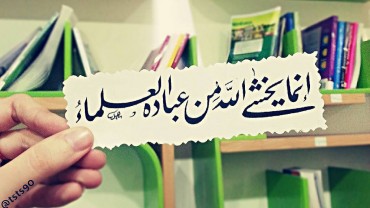 إنما يخشى اللَّه من عباده العلماءُ
@tsts90